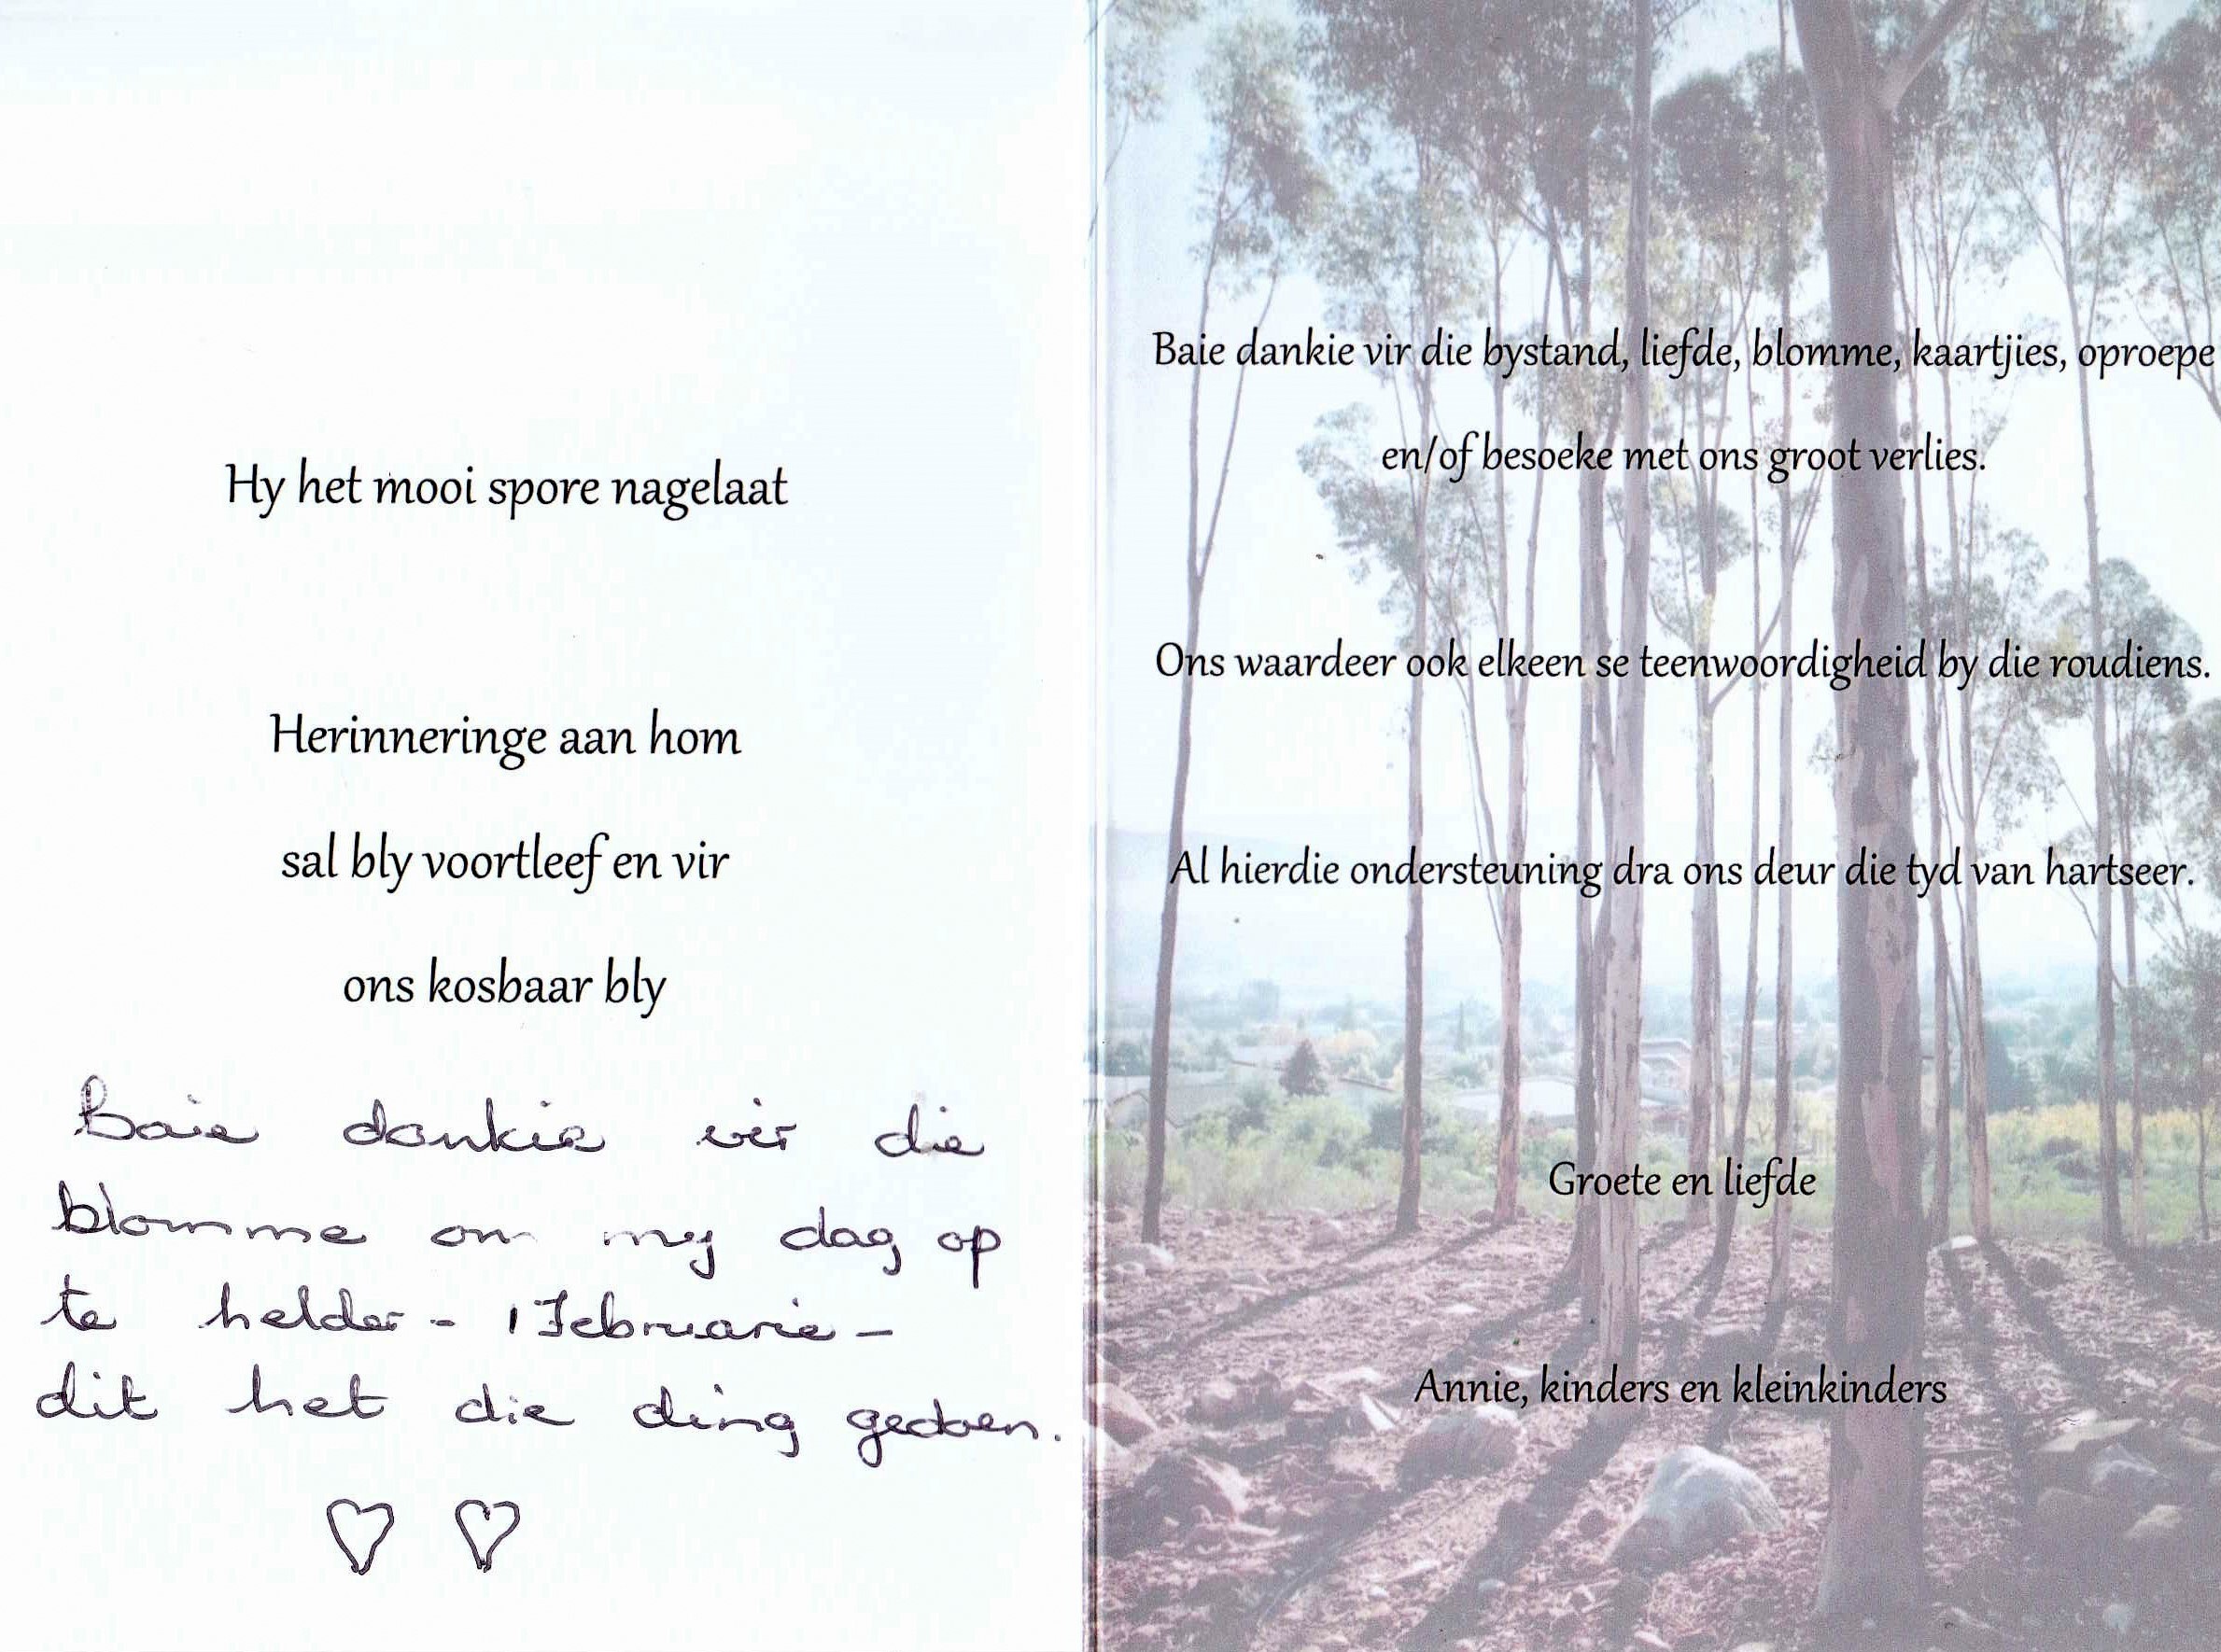 Hy het mooi spore nagelaat
Herinneringe aan hom
sal bly voortleef en vir
ons kosbaar bly
Baie dankie vir die
blomme om my dag op
te helder - 1 Februarie -
dit het die ding gedoen.
Baie dankie vir die bystand, liefde, blomme, kaartjies, oproepe
en/of besoeke met ons groot verlies.
Ons waardeer ook elkeen se teenwoordigheid by die roudiens.
Al hierdie ondersteuning dra ons deur die tyd van hartseer.
Groete en liefde
Annie, kinders en kleinkinders